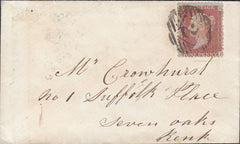 Mr Crowhurst
No 1 Suffolk Place
Seven oaks
Kent